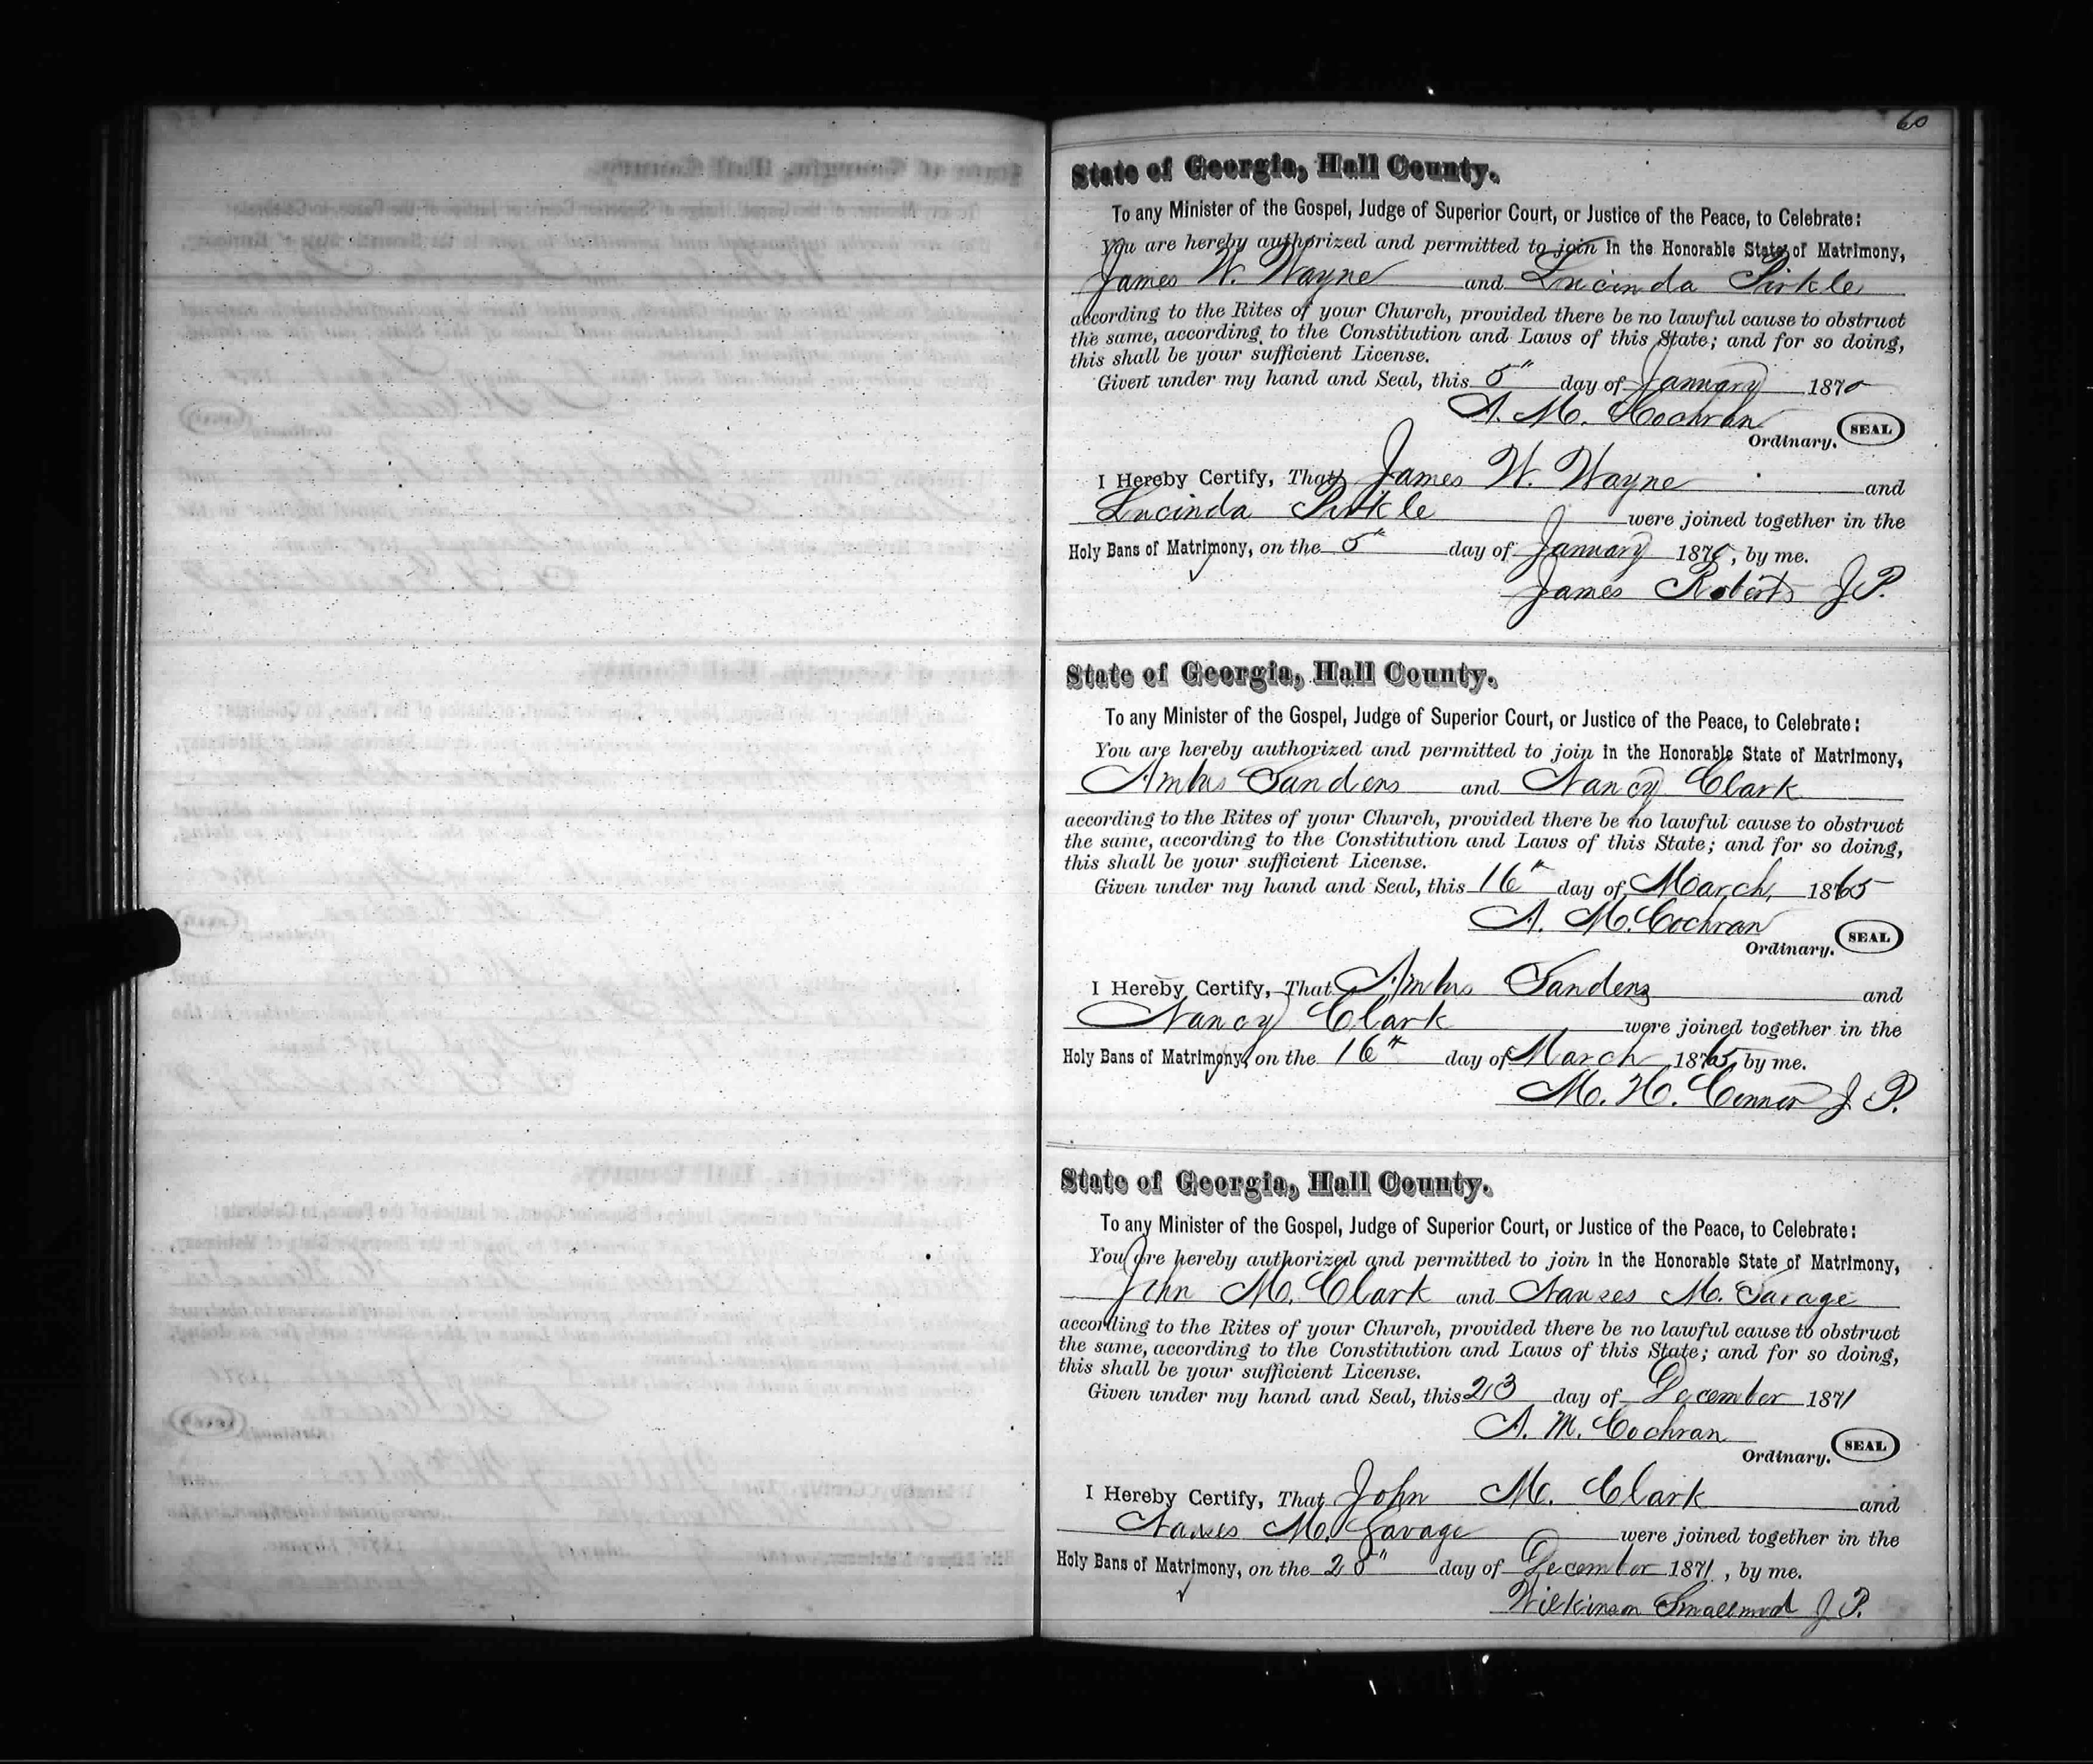 60
State of Georgia, Hall County.
To any Minister of the Gospel, Judge of Superior Court, or Justice of the Peace, to Celebrate:
You are hereby authorized and permitted to join in the Honorable State of Matrimony,
James W. Wayne and Lucinda Pirkle
according to the Rites of your Church, provided there be no lawful cause to obstruct
the same, according to the Constitution and Laws of this State; and for so doing,
this shall be your sufficient License.
Given under my hand and Seal, this 5" day of January 1870
A. M. Cochran
Ordinary. SEAL
I Hereby Certify, That James W. Wayne and
Lucinda Pirkle were joined together in the
Holy Bans of Matrimony, on the 5" day of January 1870, by me.
James Roberts J.P.
State of Georgia, Hall County.
To any Minister of the Gospel, Judge of Superior Court, or Justice of the Peace, to Celebrate:
You are hereby authorized and permitted to join in the Honorable State of Matrimony,
Sanders and Nancy Clark
according to the Rites of your Church, provided there be no lawful cause to obstruct
the same, according to the Constitution and Laws of this State; and for so doing,
this shall be your sufficient License.
Given under my hand and Seal, this 16th day of March, 1865
A. M. Cochran
Ordinary. SEAL
I Hereby Certify, That Sanders and
Nancy Clark were joined together in the
Holy Bans of Matrimony, on the 16th day of March 1865, by me.
M. H. Connor J. P.
State of Georgia, Hall County.
To any Minister of the Gospel, Judge of Superior Court, or Justice of the Peace, to Celebrate:
You are hereby authorized and permitted to join in the Honorable State of Matrimony,
John M. Clark and M. Savage
according to the Rites of your Church, provided there be no lawful cause to obstruct
the same, according to the Constitution and Laws of this State; and for so doing,
this shall be your sufficient License.
Given under my hand and Seal, this 23 day of December 1871
A. M. Cochran
Ordinary. SEAL
I Hereby Certify, That John M. Clark and
M. Savage were joined together in the
Holy Bans of Matrimony, on the day of December 1871, by me.
Wilkinson Smallwood J.P.